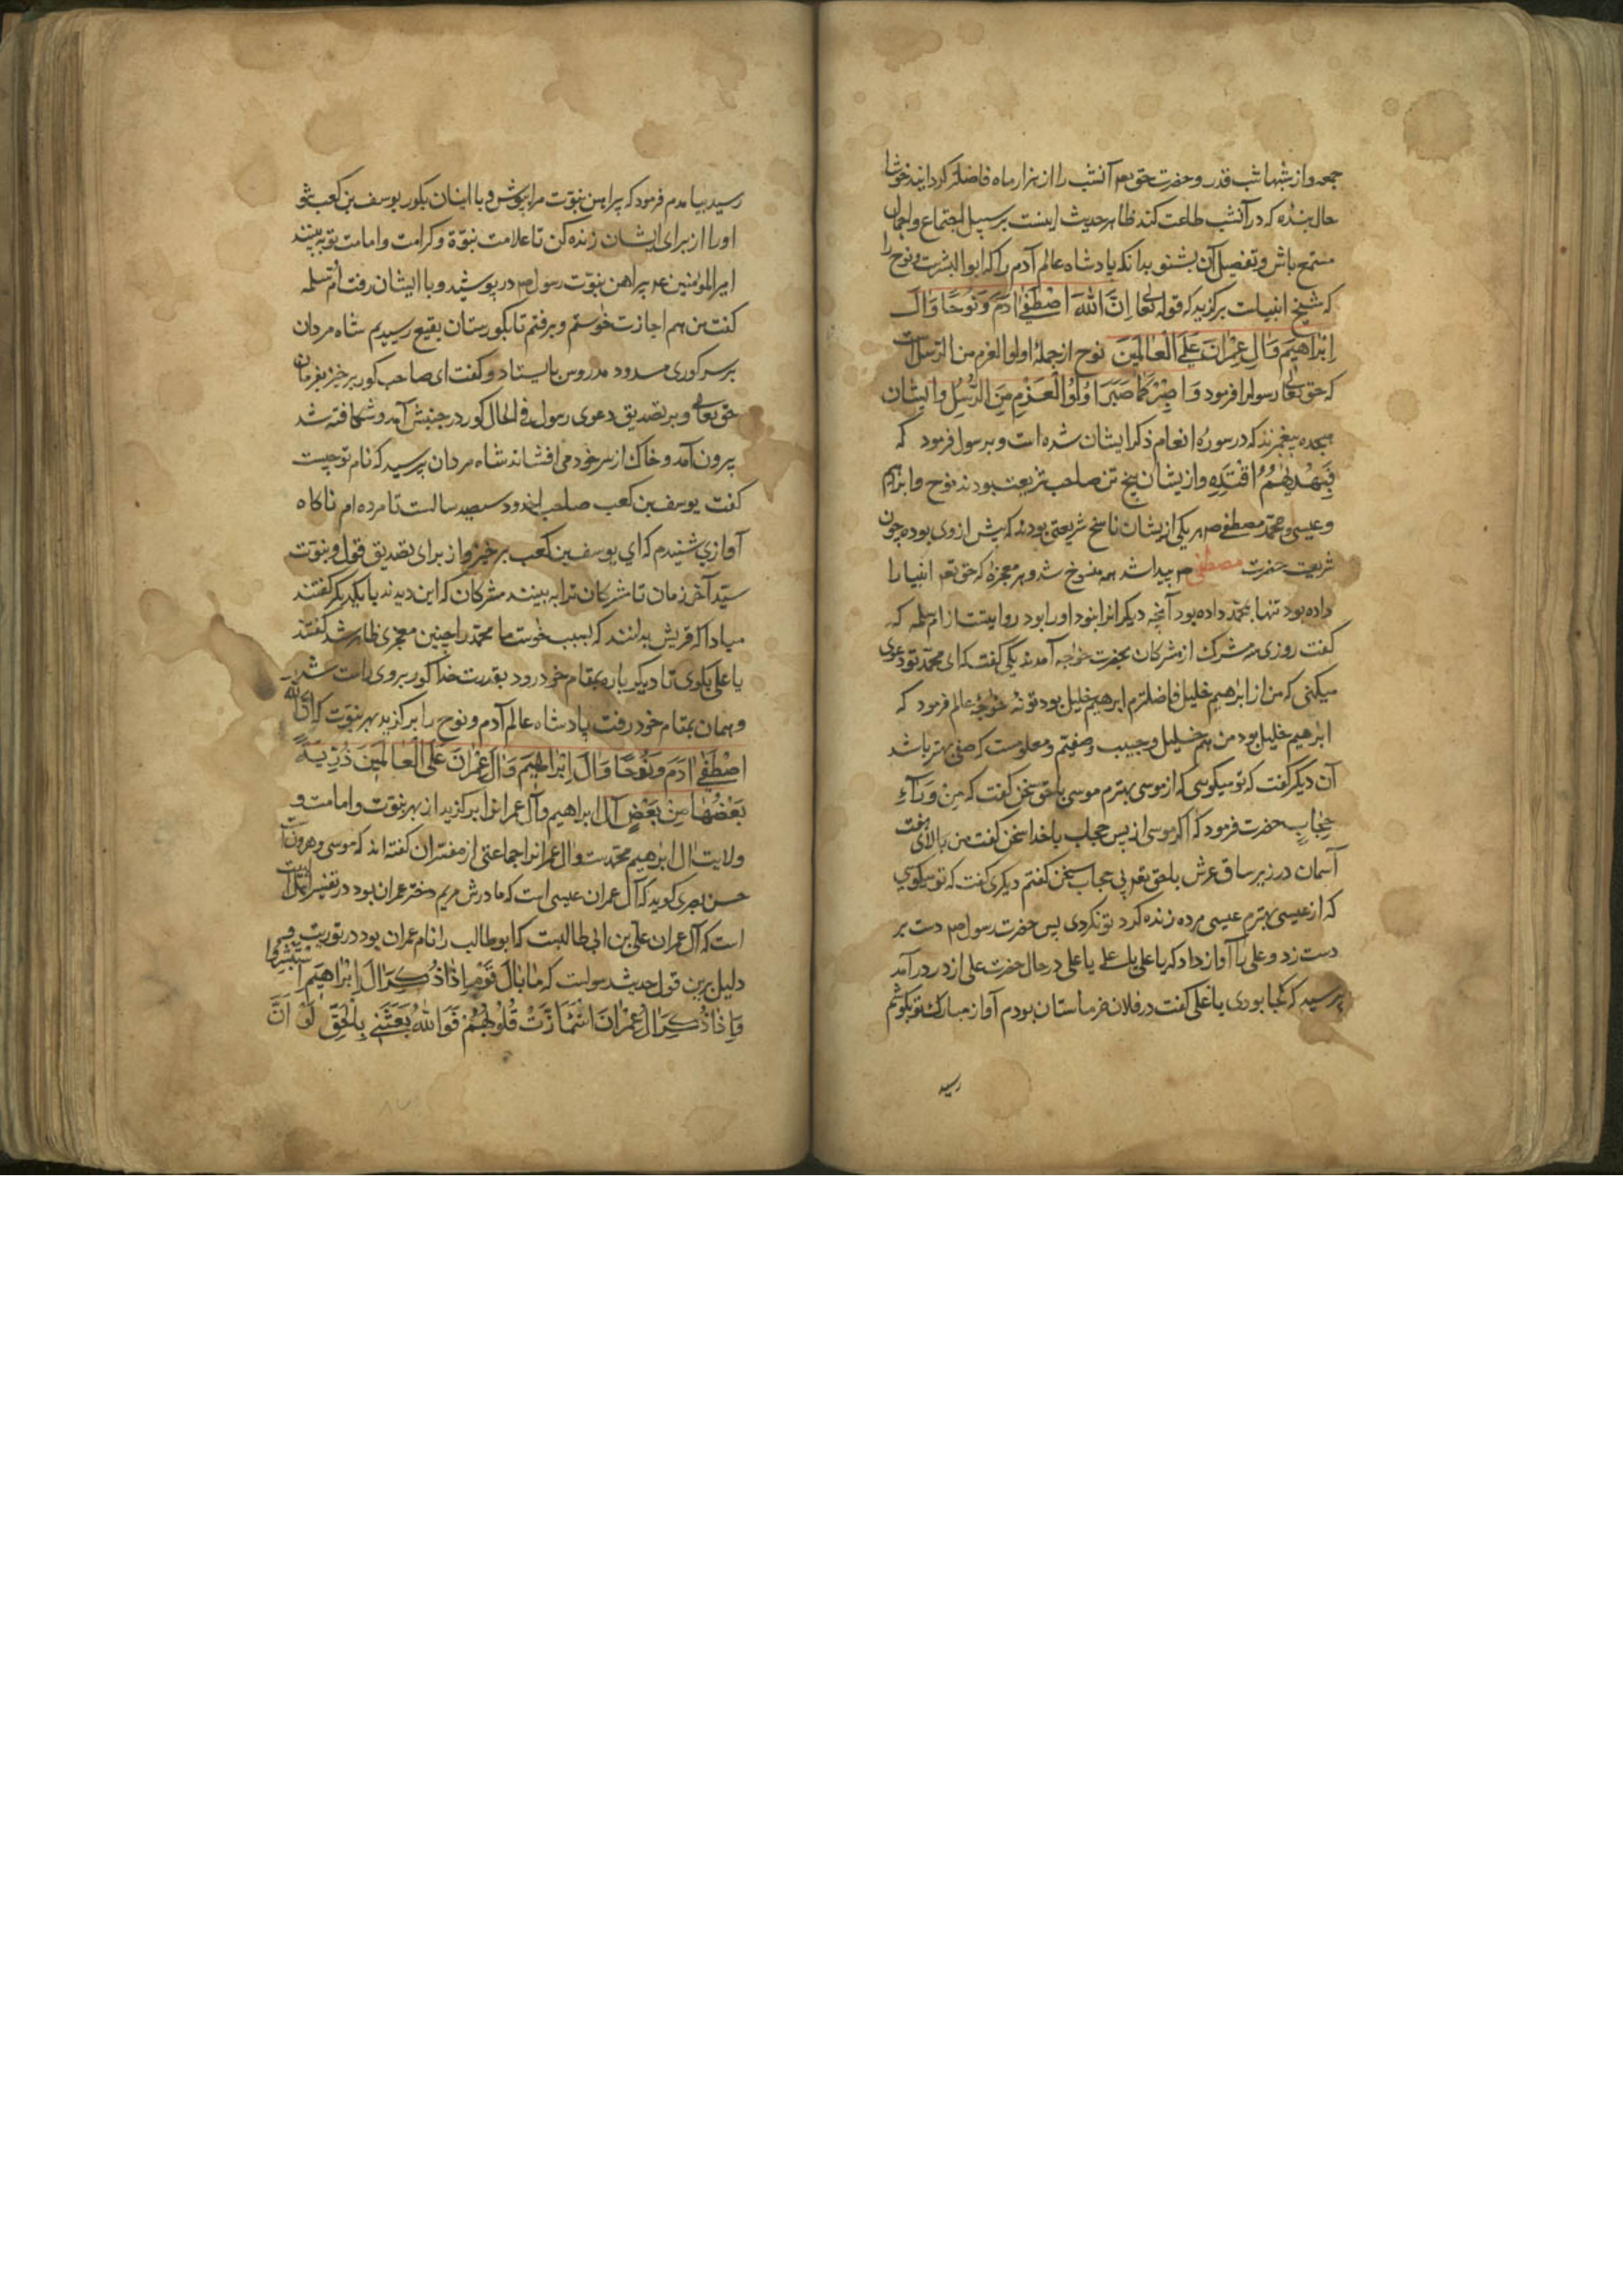 جمعه و از شبها شب قدر و حضرت حق تعم آنشب را از هزار ماه فاضلتر کردانید خوشا
حال بنده که در آنشب طاعت کند ظاهر حدیث اینست بر سبیل اجتماع و اجمال
مستمع باش و تفصیل آن بشنو بدانکه پادشاه عالم آدم را که ابوالبشرست و نوح را
که شیخ انبیاست برکزید که قوله تعا اِنَّ اللهَ اصْطَفٰی اٰدَمَ وَ نُوحًا وَ اٰلَ
اِبْرٰاهِیمَ وَ اٰلَ عِمْرٰانَ عَلَی الْعٰالَمِینَ نوح از جملهٔ اولوالعزم من الرسل است
که حق تعا رسولرا فرمود فَاصْبِرْ کَمٰا صَبَرَ اُولُوا الْعَزْمِ مِنَ الرُّسُلِ و ایشان
هجده پیغمبرند که در سورهٔ انعام ذکر ایشان شده است و بر سول فرمود که
فَبِهُدٰیهُمُ اقْتَدِهْ و ازیشان پنج تن صاحب شریعت بودند نوح و ابراهیم
و عیسی و محمد مصطفی صم هر یکی ازیشان ناسخ شریعتی بودند که پیش از وی بوده چون
شریعت حضرت مصطفی صم پیدا شد همه منسوخ شد و هر معجزهٔ که حق تعم انبیا را
داده بود تنها بمحمد داده بود آنچه دیکرانرا نبود او را بود روایتست از ام سلمه که
کفت روزی سه مشرک از مشرکان بحضرت خواجه آمدند یکی کفت که ای محمد تو دعوی
میکنی که من از ابرٰهیم خلیل فاضلترم ابرهیم خلیل بود تو نهٔ خواجهٔ عالم فرمود که
ابرٰهیم خلیل بود من هم خلیل و حبیب و صفیم و معلومست که صفی بهتر باشد
آن دیکر کفت که تو میکویی که از موسی بهترم موسی با حق سخن کفت که مِنْ وَرٰآءِ
حِجٰابٍ حضرت فرمود که اکر موسی از پس حجاب با خدا سخن کفت من بالای هفت
آسمان در زیر ساق عرش با حق تعم بی حجاب سخن کفتم دیکری کفت که تو میکویی
که از عیسی بهترم عیسی مرده زنده کرد تو نکردی پس حضرت رسول صم دست بر
دست زد و علی را آواز داد که یا علی یا علی یا علی در حال حضرت علی از در در آمد
پرسید که کجا بودی یا علی کفت در فلان خرماستان بودم آواز مبارک تو بکوشم
رسید
رسید بیامدم فرمود که پیراهن نبوّت مرا بپوش و با اینان بکور یوسف بن کعب شو
او را از برای ایشان زنده کن تا علامت نبوّة و کرامت و امامت تو به بینند
امیرالمؤمنین عم پیراهن نبوّت رسول صم در پوشید و با ایشان رفت اُم سلمه
کفت من هم اجازت خوستم و برفتم تا بکورستان بقیع رسیدیم شاه مردان
بر سر کوری مسدود مدروس بایستاد و کفت ای صاحب کور برخیز بفرمان
حق تعالی و بر تصدیق دعوی رسول فی الحال کور در جنبش آمد و شکافته شد
پیرون آمد و خاک از سر خود می افشاند شاه مردان پرسید که نام تو چیست
کفت یوسف بن کعب صاحب اخدود سیصد سالست تا مرده ام ناکاه
آوازی شنیدم که ای یوسف بن کعب برخیز و از برای تصدیق قول و نبوّت
سیّد آخر زمان تا مشرکان ترا به بینند مشرکان که این دیدند با یکدیکر کفتند
مبادا که قریش بدانند که بسبب خوست ما محمد را چنین معجزی ظاهر شد کفتند
یا علی بکوی تا دیکر باره بمقام خود رود بقدرت خدا کور بر وی راست شد
و همان بمقام خود رفت پادشاه عالم آدم و نوح را برکزید بهر نبوّت که اِنَّ اللهَ
اصْطَفٰی اٰدَمَ وَ نُوحًا وَ اٰلَ اِبْرٰاهِیمَ وَ اٰلَ عِمْرٰانَ عَلَی الْعٰالَمِینَ ذُرِّیَةً
بَعْضُهٰا مِنْ بَعْضٍ آل ابراهیم و آل عمرانرا برکزید از بهر نبوّت و امامت و
ولایت ال ابرٰهیم محمدست و ال عمرانرا جماعتی از مفسّران کفته اند که موسی و هرونست
حسن بصری کوید که آل عمران عیسی است که مادرش مریم دختر عمران بود در تفسیر اهل البیت
است که آل عمران علی بن ابی طالبست که ابوطالب را نام عمران بود در توریت و
دلیل برین قول حدیث رسولست که مٰا بٰالُ قَوْمٍ اِذٰا ذُکِرَ اٰلَ اِبْرٰاهِیمَ اسْتَبْشَرُوا
وَ اِذٰا ذُکِرَ اٰلَ عِمْرٰانَ اشْمَأَزَّتْ قُلُوبُهُمْ فَوَ اللهِ بَعَثَنِی بِالْحَقِّ لَوْ اَنَّ